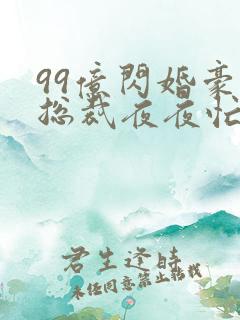 99億閃婚豪
總裁夜夜忙
君生逢時
未經同意禁止轉載